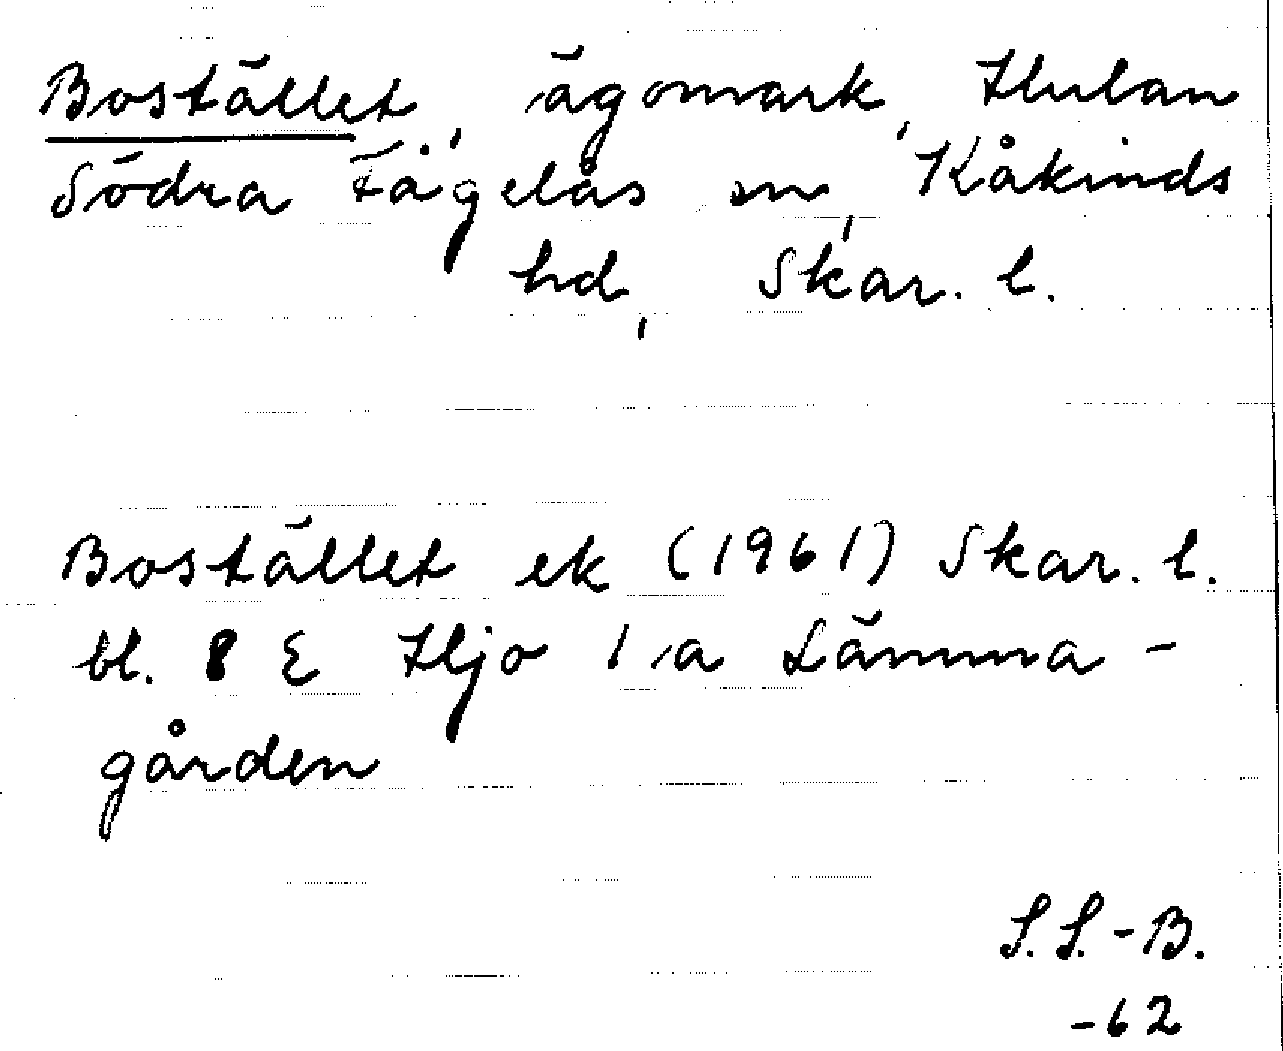 Bostället, ägomark, Hulan
Södra Fågelås sn, Kåkinds
hd, Skar. l.
Bostället ek (1961) Skar. l.
bl. 8 E Hjo 1 a Lämma-
gården
S.S.-B.
-62